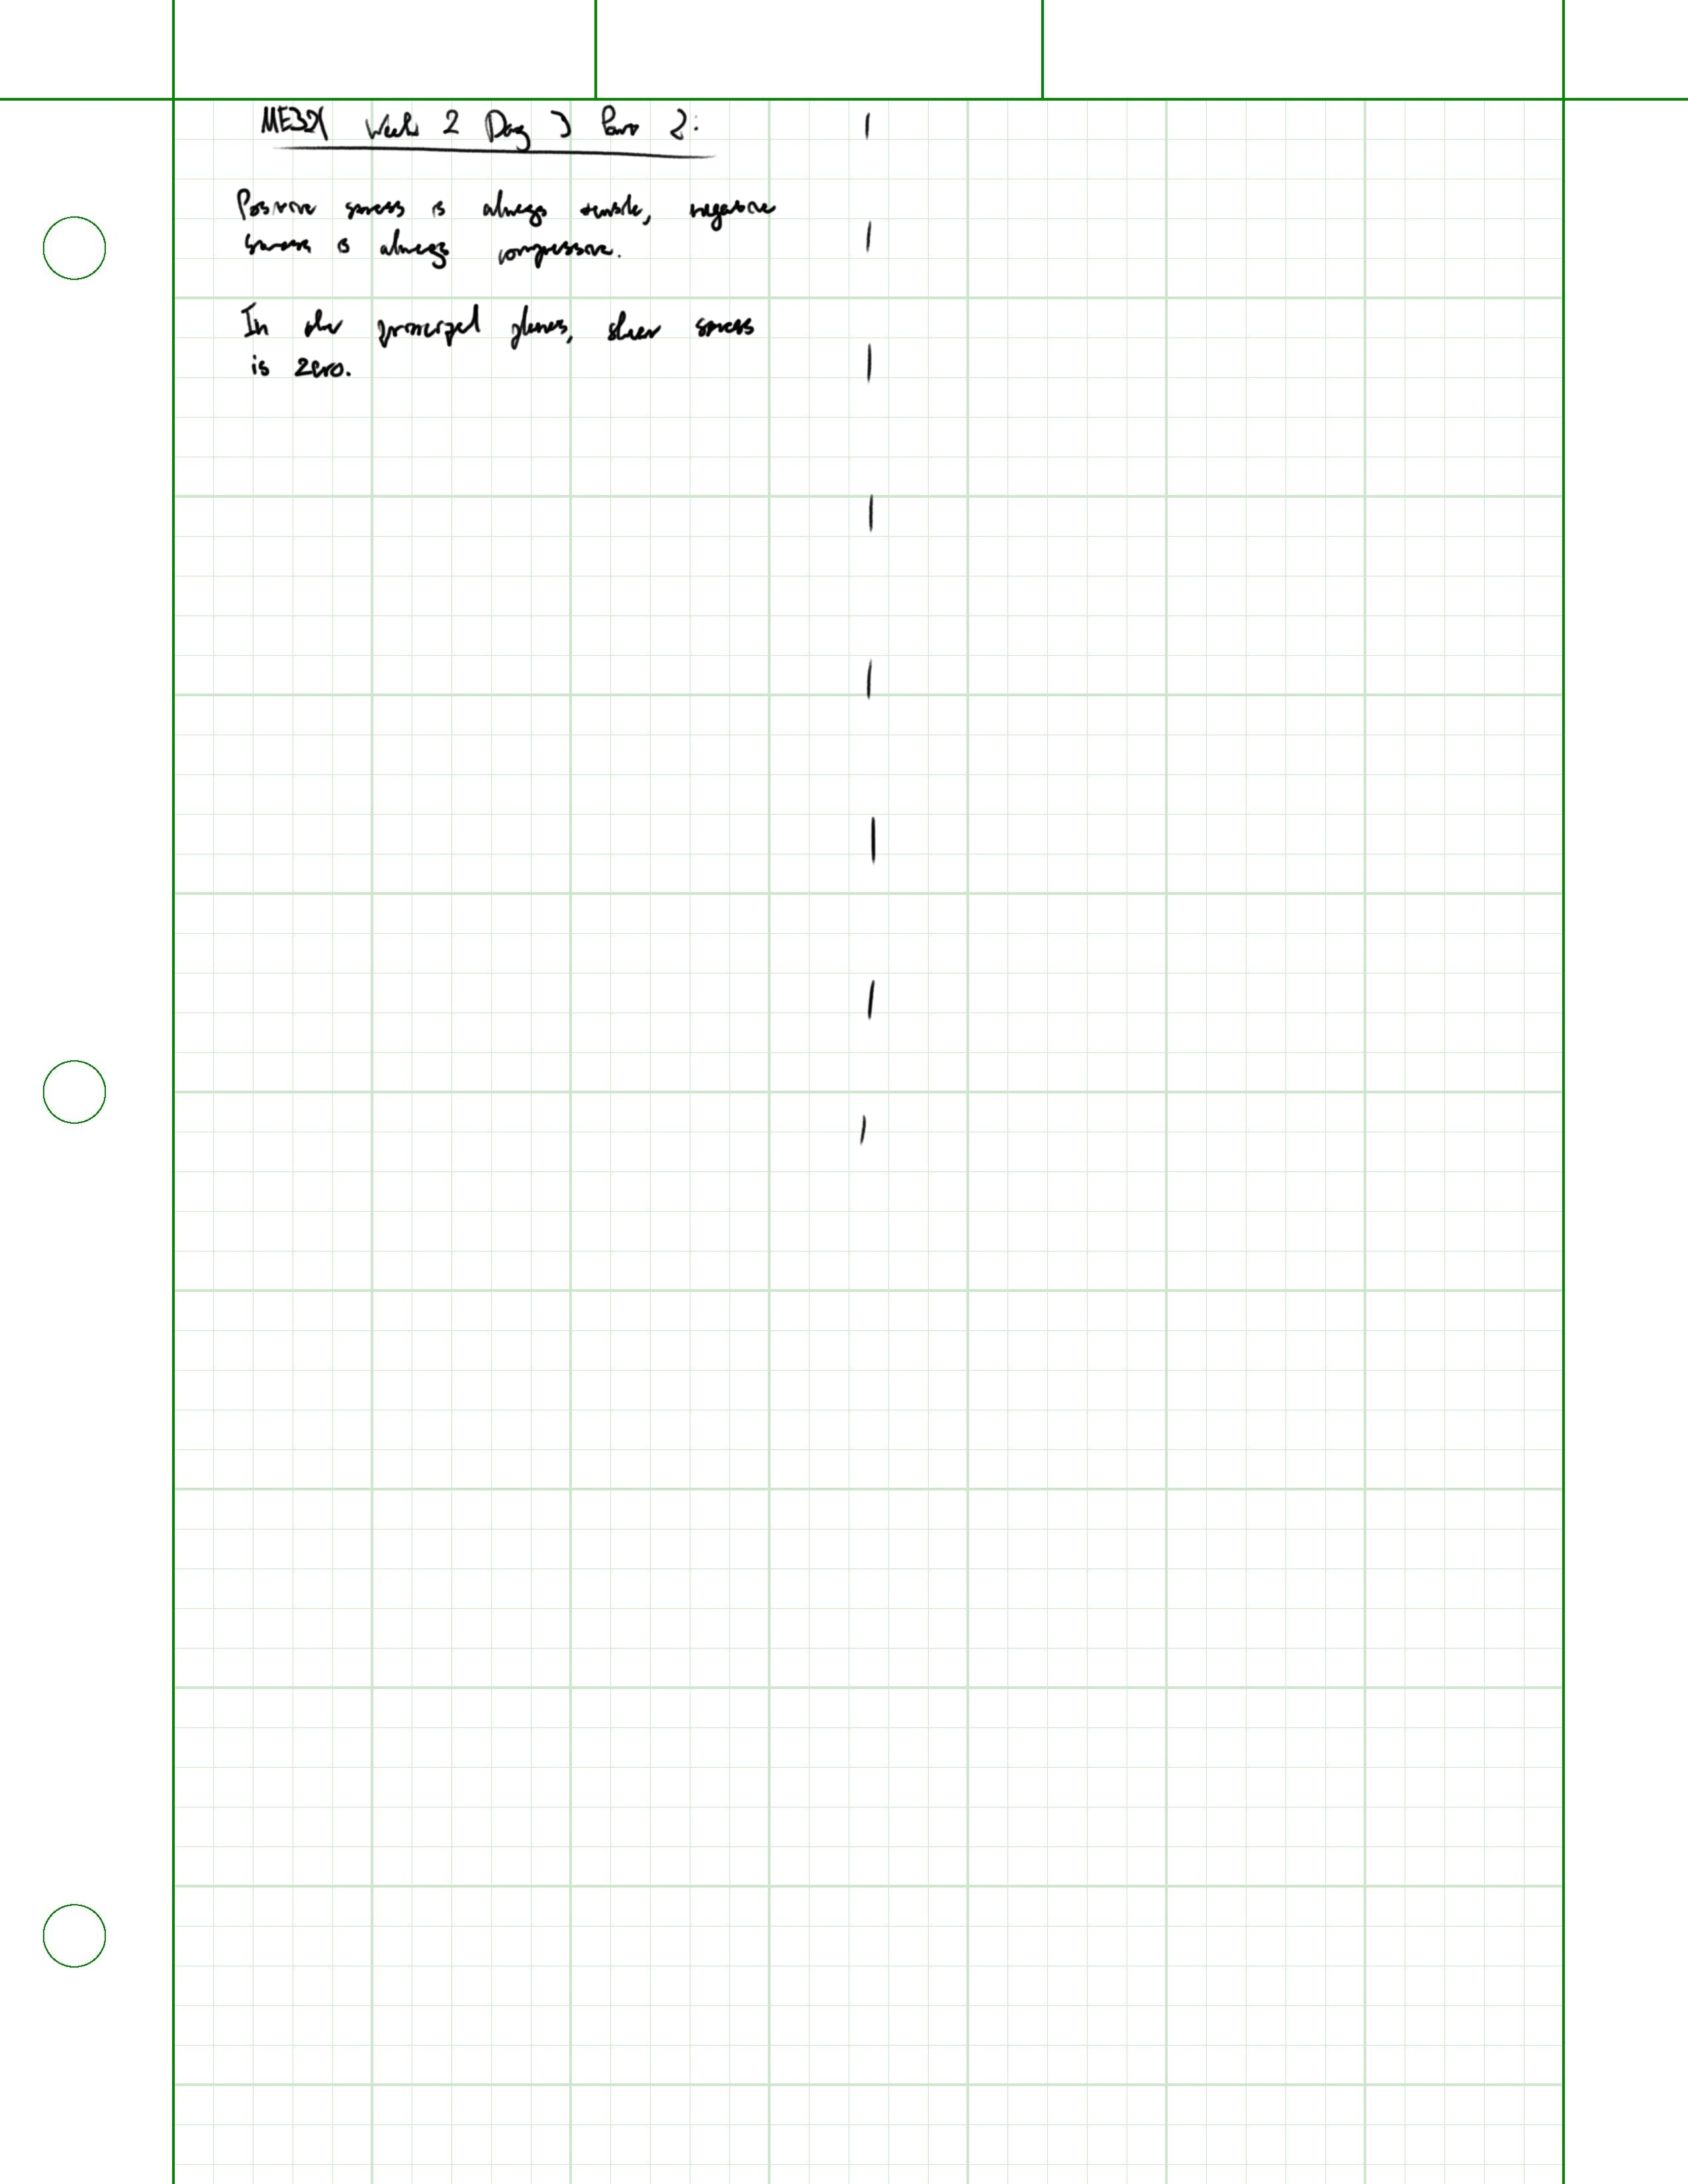 ME321 Week 2 Day 3 Part 2:
Positive stress is always tensile, negative
stress is always compressive.
In the principal planes, shear stress
is zero.